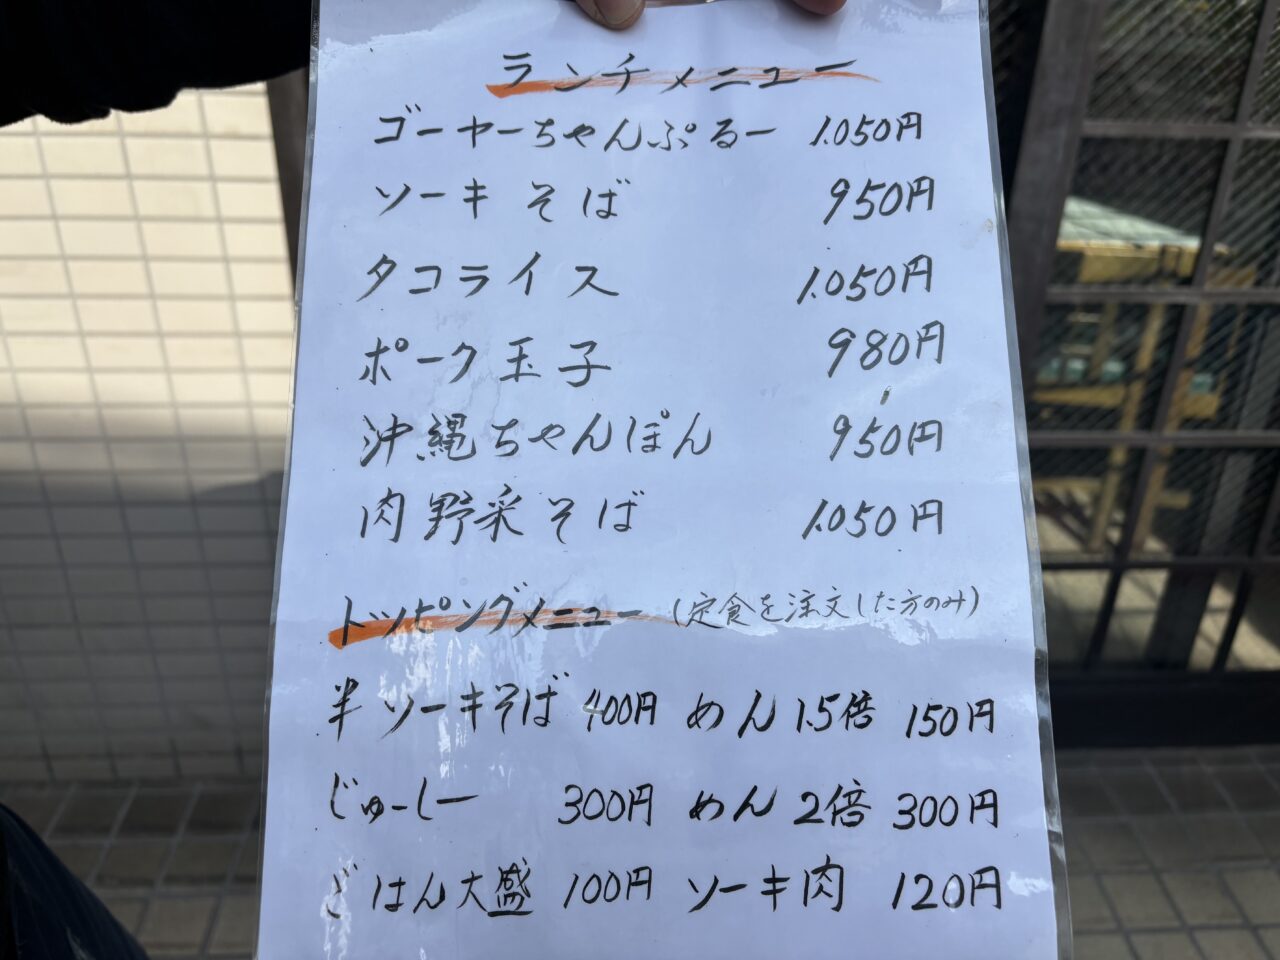 ランチメニュー
ゴーヤーちゃんぷるー 1.050円
ソーキそば 950円
タコライス 1.050円
ポーク玉子 980円
沖縄ちゃんぽん 950円
肉野菜そば 1.050円
トッピングメニュー (定食を注文した方のみ)
半ソーキそば 400円 めん1.5倍 150円
じゅーしー 300円 めん2倍 300円
ごはん大盛 100円 ソーキ肉 120円